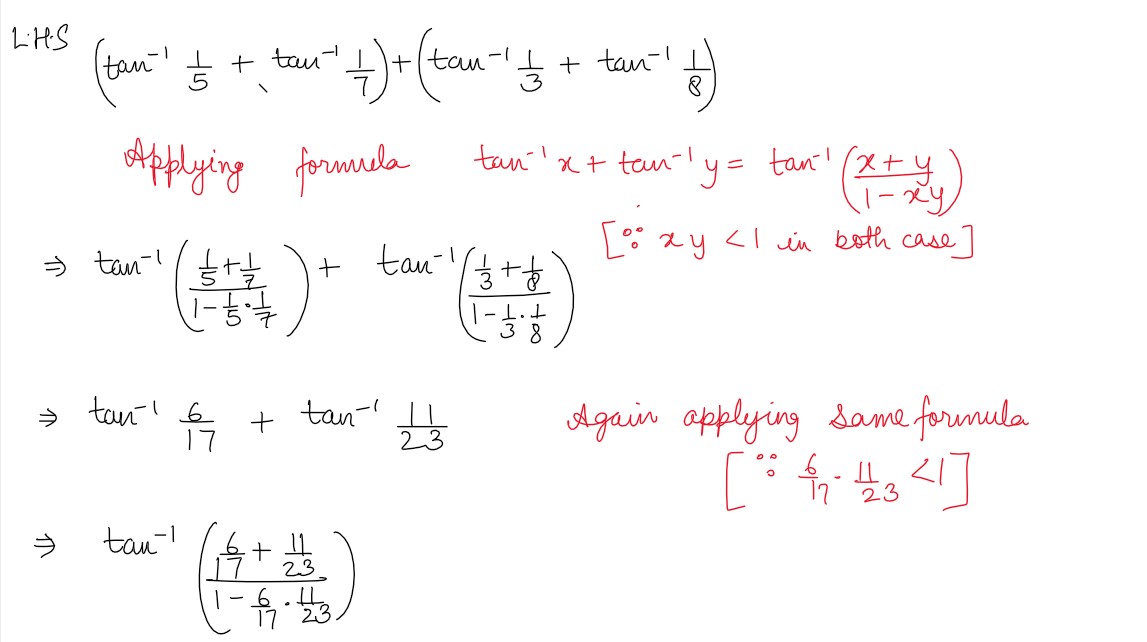 L.H.S (tan⁻¹ 1/5 + tan⁻¹ 1/7) + (tan⁻¹ 1/3 + tan⁻¹ 1/8)
Applying formula tan⁻¹ x + tan⁻¹ y = tan⁻¹ ((x + y)/(1 - xy))
[∵ xy < 1 in both case]
⇒ tan⁻¹ ((1/5 + 1/7)/(1 - 1/5 · 1/7)) + tan⁻¹ ((1/3 + 1/8)/(1 - 1/3 · 1/8))
⇒ tan⁻¹ 6/17 + tan⁻¹ 11/23 Again applying same formula
[∵ 6/17 · 11/23 < 1]
⇒ tan⁻¹ ((6/17 + 11/23)/(1 - 6/17 · 11/23))